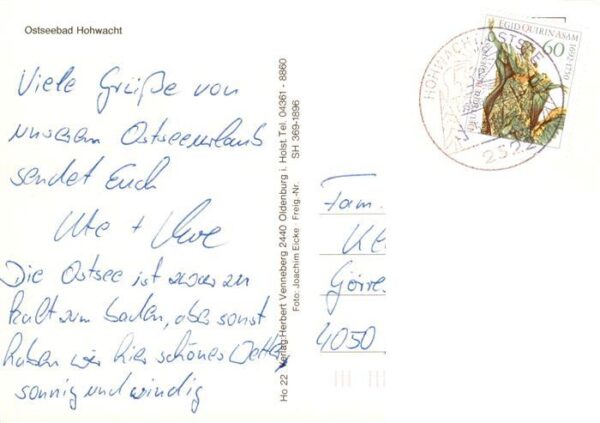 Ostseebad Hohwacht
Viele Grüße von
unserem Ostseeurlaub
sendet Euch
Ute + Uwe
Die Ostsee ist zwar zu
kalt zum baden, aber sonst
haben wir hier schönes Wetter,
sonnig und windig
Ho 22 Verlag Herbert Venneberg 2440 Oldenburg i. Holst. Tel. 04361 - 8860
Foto: Joachim Eicke Freig.-Nr. SH 369-1896
EGID QUIRIN ASAM
1692-1750
60
DEUTSCHE BUNDESPOST
HOHWACHT OSTSEE
Fam.
Görre
4050